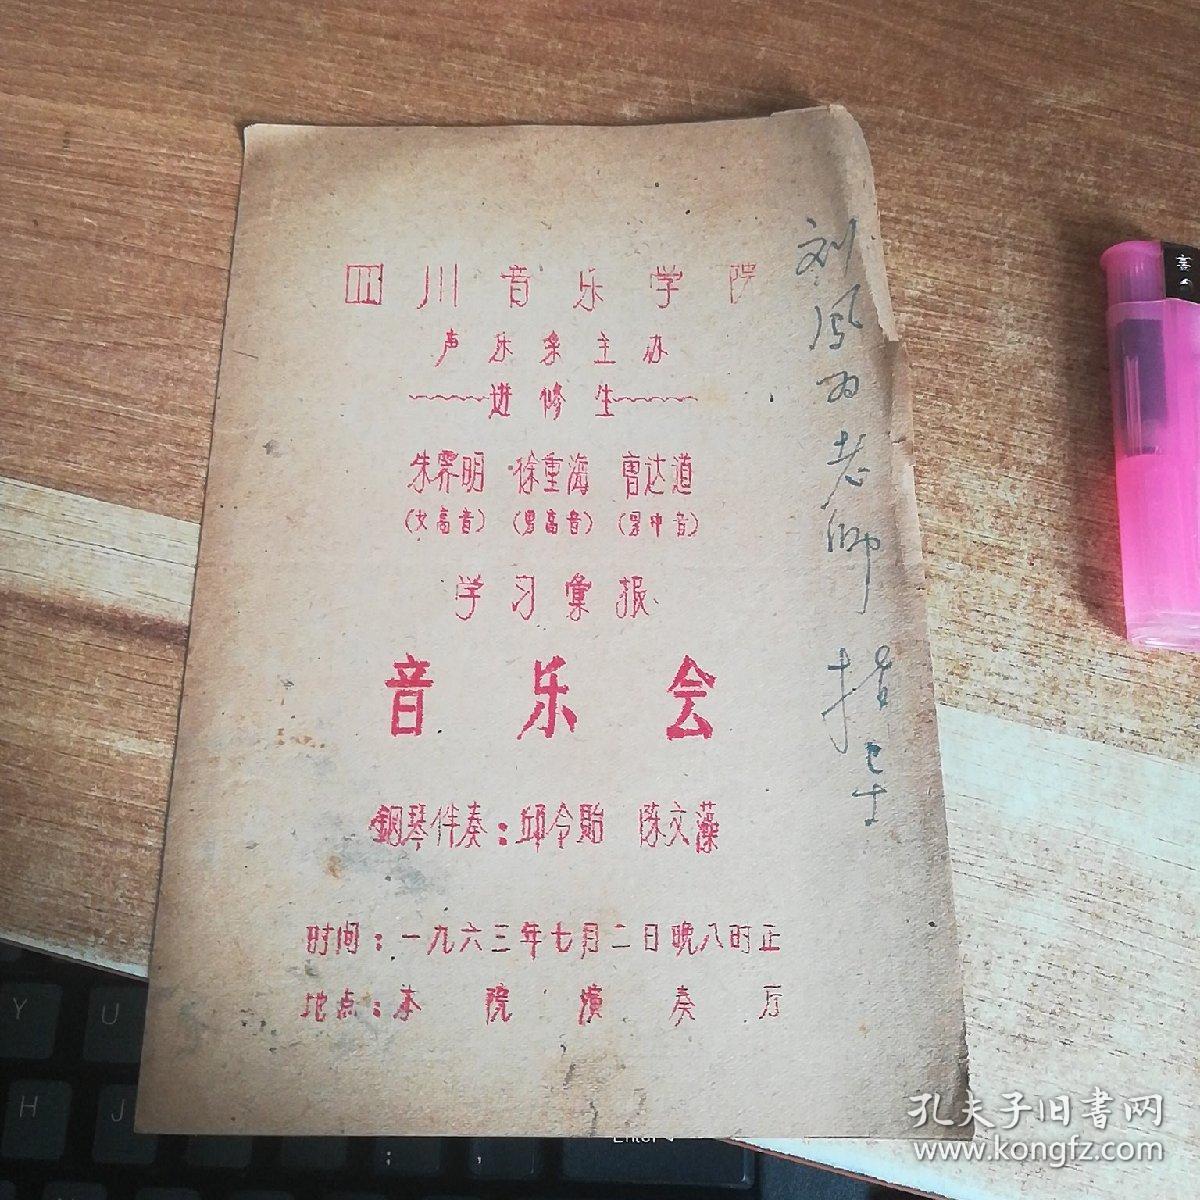 四川音乐学院
声乐系主办
进修生
朱霁明 徐重海 曹达道
(女高音) (男高音) (男中音)
学习彙报
音乐会
鋼琴伴奏:邱令貽 陈文藻
时间:一九六三年七月二日晚八时正
地点:本院演奏厅
刘 老师指导
Y
U
H
J
Enter
孔夫子旧書网
www.kongfz.com